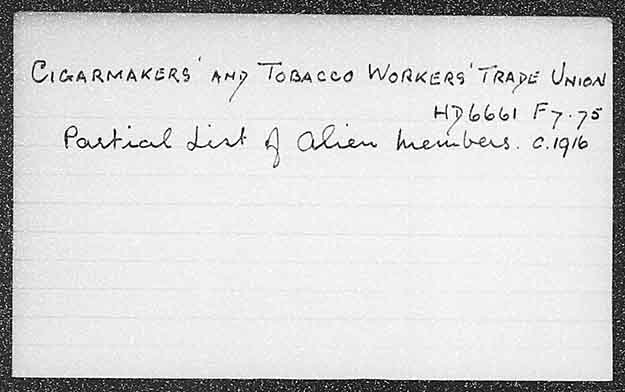 CIGARMAKERS' AND TOBACCO WORKERS' TRADE UNION
HD6661 F7.75
Partial List of Alien Members. c.1916